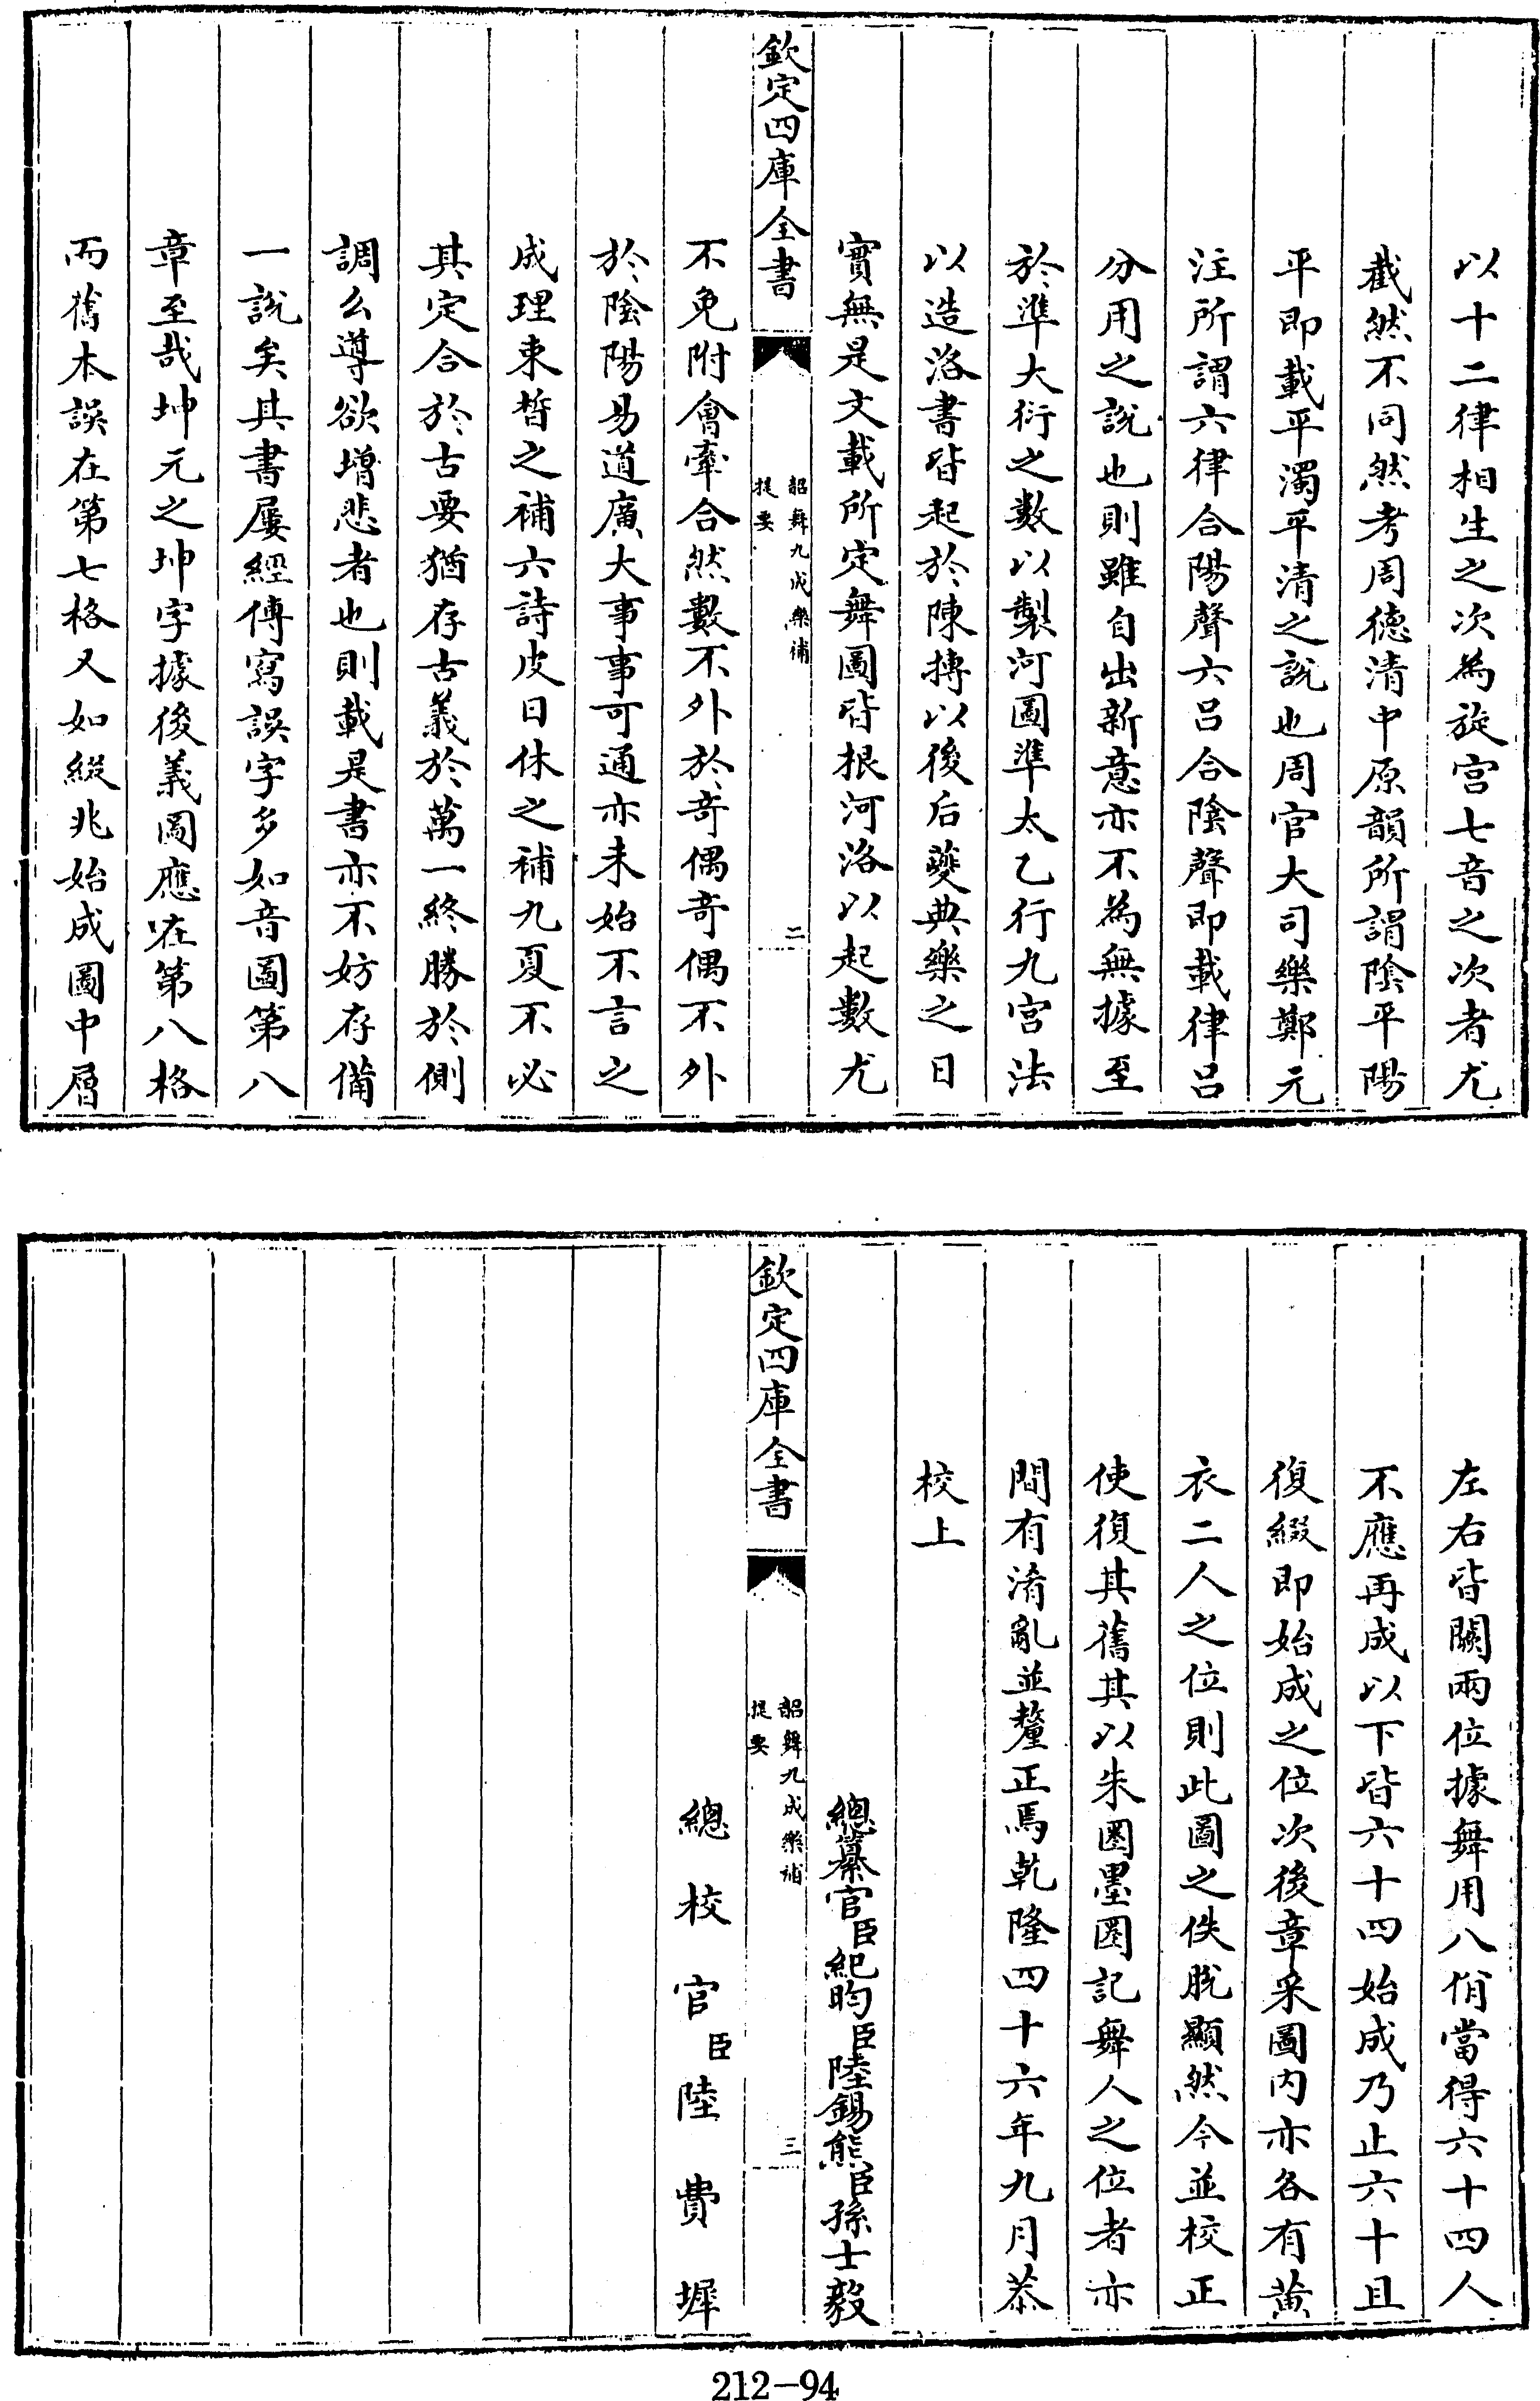 以十二律相生之次為旋宫七音之次者尤
截然不同然考周德清中原韻所謂陰平陽
平即載平濁平清之說也周官大司樂鄭元
注所謂六律合陽聲六呂合陰聲即載律呂
分用之說也則雖自出新意亦不為無據至
於準大衍之數以製河圖準太乙行九宫法
以造洛書皆起於陳摶以後后夔典樂之日
實無是文載所定舞圖皆根河洛以起數尤
欽定四庫全書
韶舞九成樂補
提要
二
不免附會牽合然數不外於竒偶竒偶不外
於陰陽易道廣大事事可通亦未始不言之
成理束晳之補六詩皮日休之補九夏不必
其定合於古要猶存古義於萬一終勝於側
調么導欲增悲者也則載是書亦不妨存備
一說矣其書屢經傳寫誤字多如音圖第八
章至哉坤元之坤字據後義圖應在第八格
而舊本誤在第七格又如綴兆始成圖中層
左右皆闕兩位據舞用八佾當得六十四人
不應再成以下皆六十四始成乃止六十且
復綴即始成之位次後章采圖内亦各有黄
衣二人之位則此圖之佚脱顯然今並校正
使復其舊其以朱圏墨圏記舞人之位者亦
間有淆亂並釐正焉乾隆四十六年九月恭
校上
總纂官臣紀昀臣陸錫熊臣孫士毅
欽定四庫全書
韶舞九成樂補
提要
三
總校官臣陸費墀
212-94